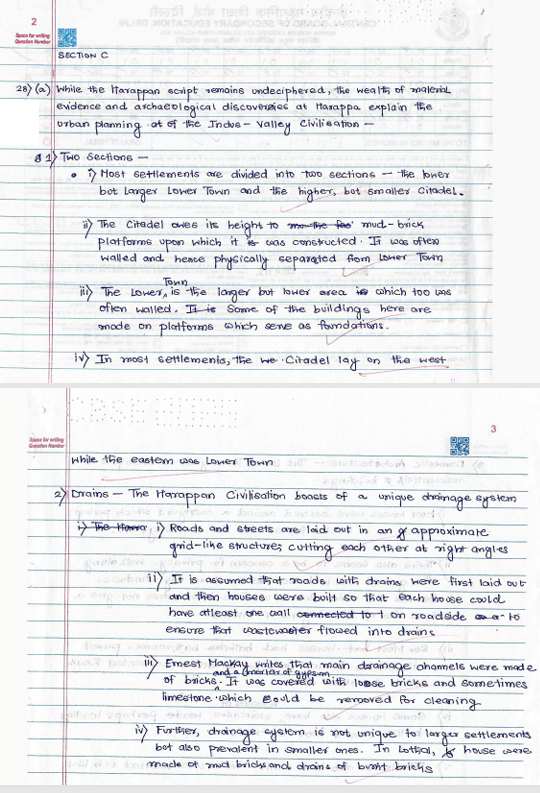 2
Space for writing
Question Number
SECTION C
28) (a) While the Harappan script remains undeciphered, the wealth of material
evidence and archaeological discoveries at Harappa explain the
urban planning of the Indus-Valley Civilisation –
1) Two Sections –
• i) Most settlements are divided into two sections – the lower
bot larger Lower Town and the higher, bot smaller Citadel.
ii) The Citadel owes its height to mud-brick
platforms upon which it was constructed. It was often
walled and hence physically separated from Lower Town
iii) The Lower Town is the larger but lower area which too was
often walled. Some of the buildings here are
made on platforms which serve as foundations.
iv) In most settlements, the Citadel lay on the west
3
Space for writing
Question Number
while the eastern was Lower Town
2) Drains – The Harappan Civilisation boasts of a unique drainage system
i) Roads and streets are laid out in an approximate
grid-like structure, cutting each other at right angles
ii) It is assumed that roads with drains were first laid out
and then houses were built so that each house could
have atleast one wall on roadside to
ensure that wastewater flowed into drains
iii) Ernest Mackay writes that main drainage channels were made
of bricks and a mortar of gypsum. It was covered with loose bricks and sometimes
limestone which could be removed for cleaning
iv) Further, drainage system is not unique to larger settlements
but also prevalent in smaller ones. In Lothal, house were
made of mud bricks and drains of burnt bricks